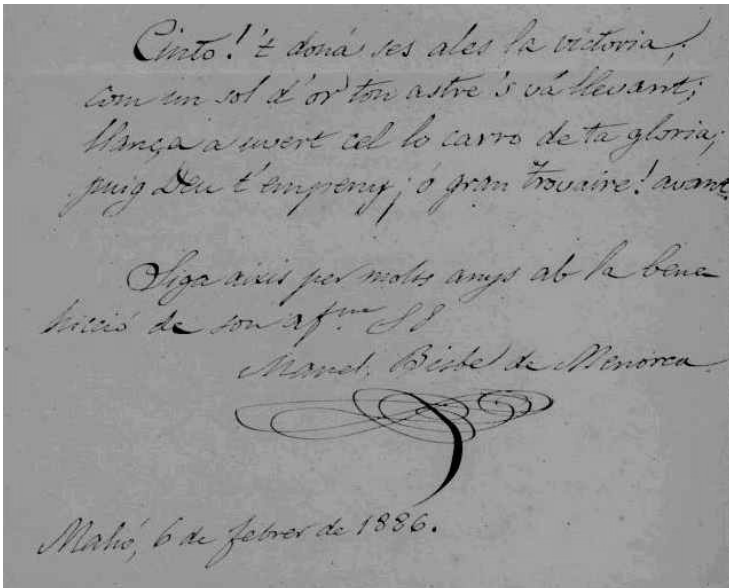 Cinto! 't doná ses ales la victoria;
com un sol d'or ton astre 's vá llevant;
llança a uvert cel lo carro de ta gloria;
puig Deu t'empeny; ó gran Trovaire! avant
Siga aixis per molts anys ab la bene
hicció de son af.m SS
Manel. Bisbe de Menorca.
Mahó, 6 de febrer de 1886.